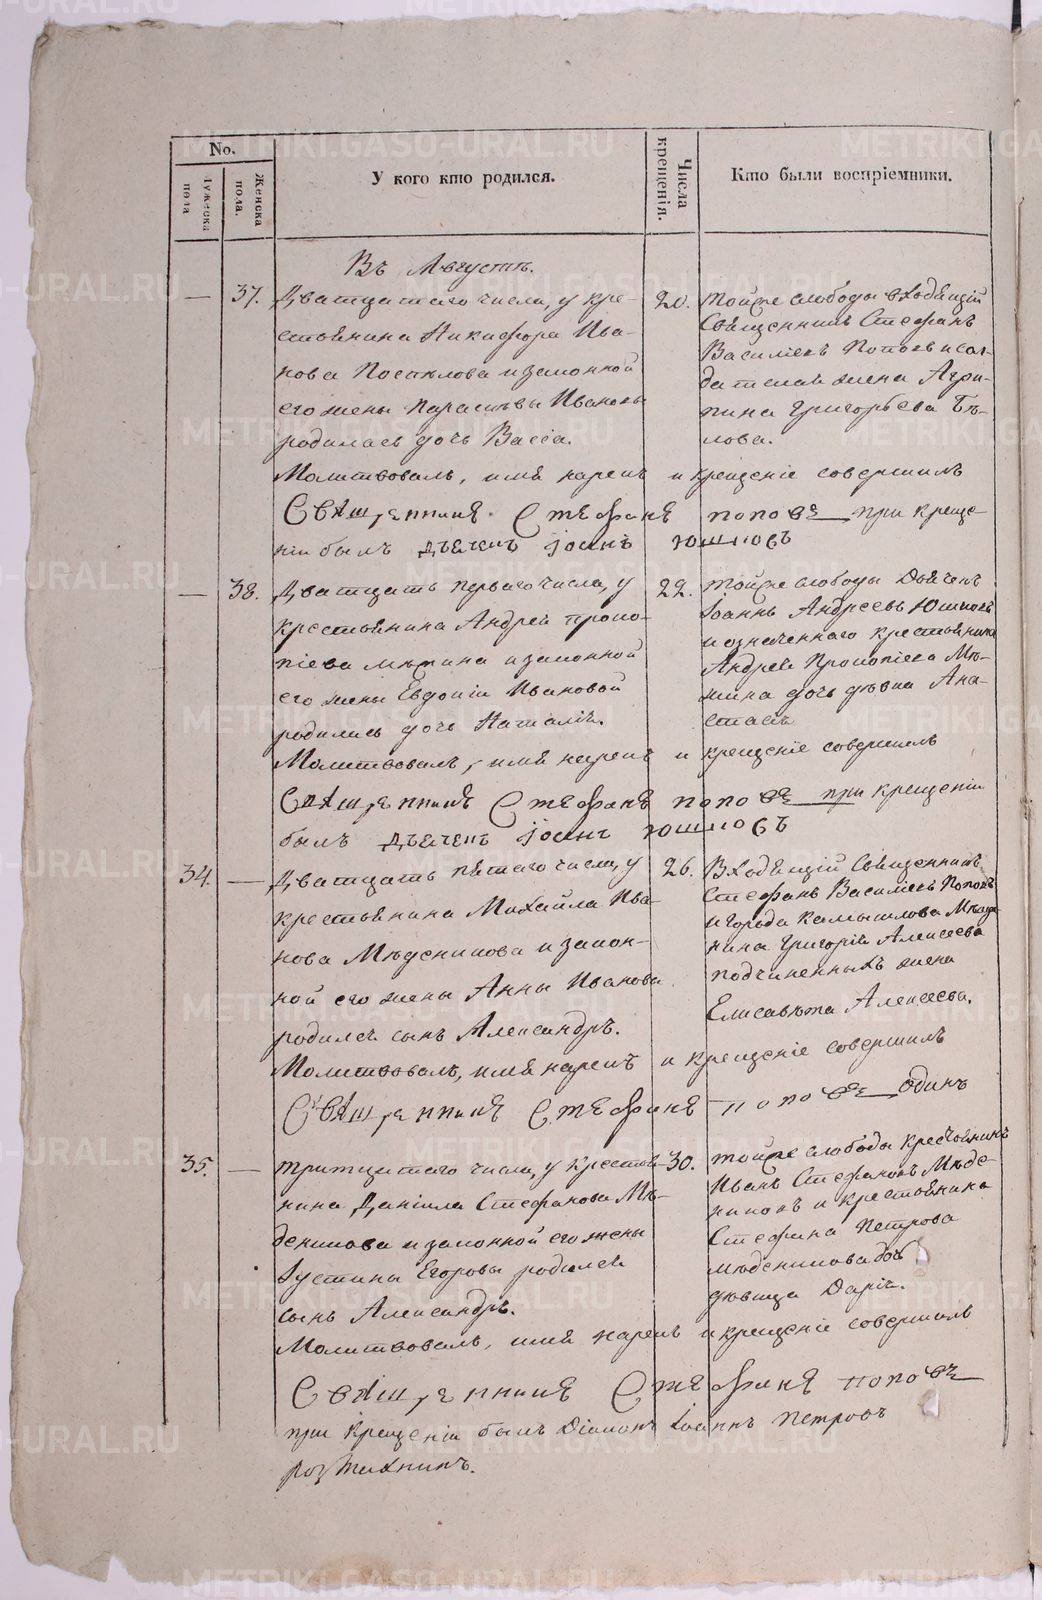 No.
Мужеска пола
Женска пола.
У кого кто родился.
Числа крещенія.
Кто были воспріемники.
Въ Августѣ.
— 37. Дватцатаго числа, у кре-
стьянина Никифора Ива-
нова Поспѣлова и законной
его жены Парасковьи Ивановы
родилась дочь Васса.
20. тойже слободы входящій
Священникъ Стефанъ
Василіевъ Поповъ и сол-
датская жена Агри-
пина Григорьева Бѣ-
лова.
Молитвовалъ, имя нарекъ и крещеніе совершилъ
Священникъ Стефанъ Поповъ при креще-
ніи былъ дьячекъ Іоанъ Юшковъ
— 38. Дватцать перваго числа, у
крестьянина Андрея Проко-
піева и законной
его жены Евдокіи Ивановой
родилась дочь Наталія.
22. тойже слободы Дьячекъ
Іоаннъ Андреевъ Юшковъ
и означеннаго крестьянина
Андрея Прокопіева
дочь дѣвка Ана-
стасія
Молитвовалъ, имя нарекъ и крещеніе совершилъ
Священникъ Стефанъ Поповъ при крещеніи
былъ дьячекъ Іоанъ Юшковъ
34. — Дватцать пятаго числа, у
крестьянина Михайла Ива-
нова Мѣденикова и закон-
ной его жены Анны Иванова
родился сынъ Александръ.
26. Входящій Священникъ
Стефанъ Василіевъ Поповъ
и города Камышлова Мѣща-
нина Григорія Алексеева
Подчиненныхъ жена
Елисавѣта Алексеева.
Молитвовалъ, имя нарекъ и крещеніе совершилъ
Священникъ Стефанъ Поповъ одинъ
35. — Тритцатаго числа, у крестья-
нина Даніила Стефанова Мѣ-
деникова и законной его жены
Іустины Егоровы родился
сынъ Александръ.
30. тойже слободы крестьянинъ
Иванъ Стефановъ Мѣде-
никовъ и крестьянина
Стефана Петрова
Мѣденикова дочь
дѣвица Дарія.
Молитвовалъ, имя нарекъ и крещеніе совершилъ
Священникъ Стефанъ Поповъ
при крещеніи былъ Діаконъ Іоаннъ Петровъ
METRIKI.GASO-URAL.RU